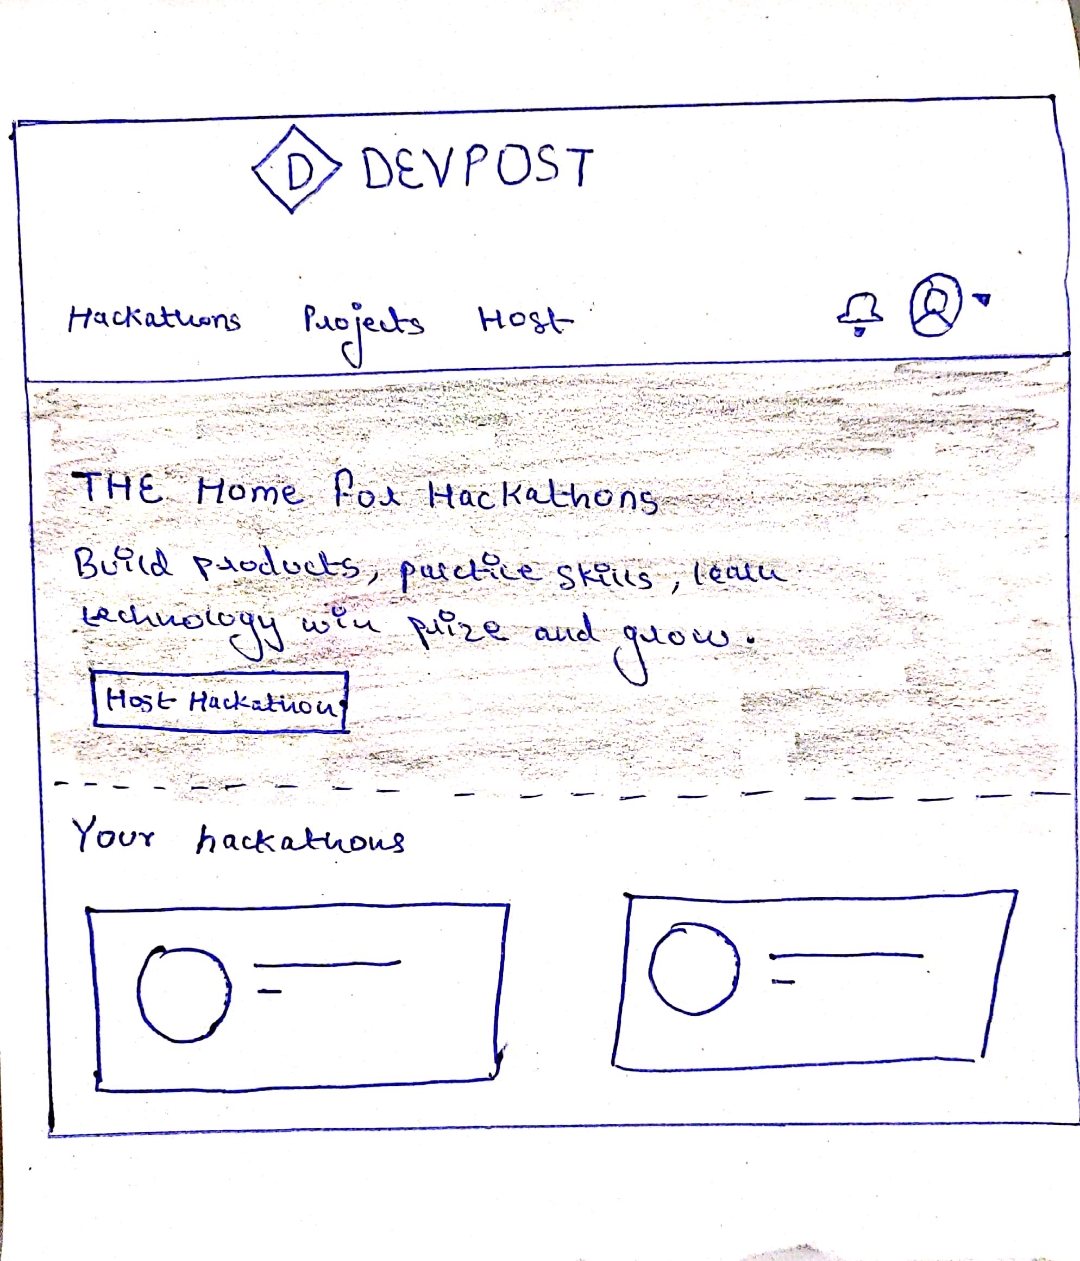 D DEVPOST
Hackathons Projects Host
THE Home for Hackathons
Build products, practice skills, learn
technology win prize and grow.
Host Hackathon
Your hackathons